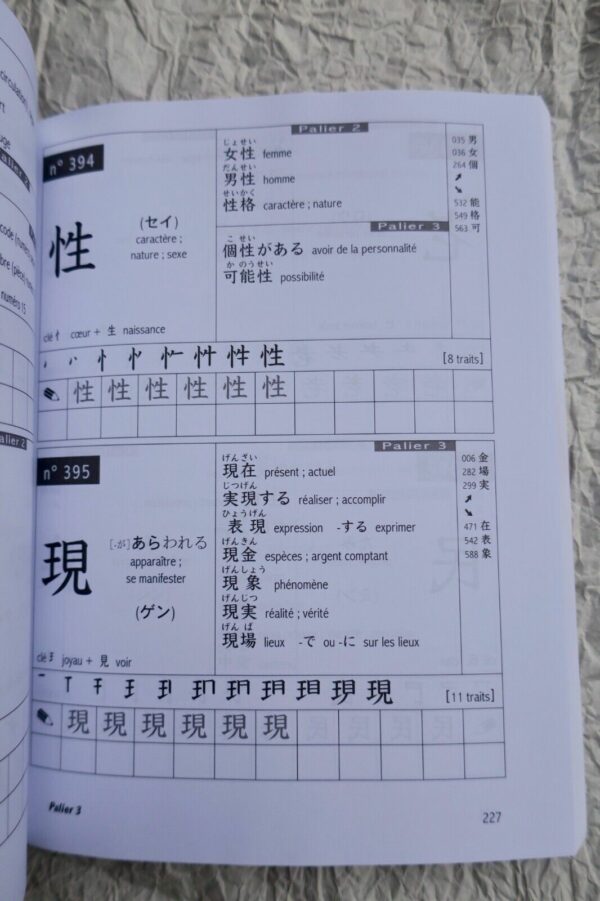 circulation
rt
uge
Palier 2
code (numéro
bre (pièce)
numéro 15
Palier 2
n° 394
性
(セイ)
caractère ;
nature ; sexe
clé 忄 cœur + 生 naissance
Palier 2
じょせい
女性 femme
だんせい
男性 homme
せいかく
性格 caractère ; nature
Palier 3
こせい
個性がある avoir de la personnalité
かのうせい
可能性 possibilité
035 男
036 女
264 個
➚
➘
532 能
549 格
563 可
性 [8 traits]
性 性 性 性 性 性
n° 395
現
[-が] あらわれる
apparaître ;
se manifester
(ゲン)
clé 王 joyau + 見 voir
Palier 3
げんざい
現在 présent ; actuel
じつげん
実現する réaliser ; accomplir
ひょうげん
表現 expression -する exprimer
げんきん
現金 espèces ; argent comptant
げんしょう
現象 phénomène
げんじつ
現実 réalité ; vérité
げんば
現場 lieux -で ou -に sur les lieux
006 金
282 場
299 実
➚
➘
471 在
542 表
588 象
現 [11 traits]
現 現 現 現 現 現
Palier 3
227